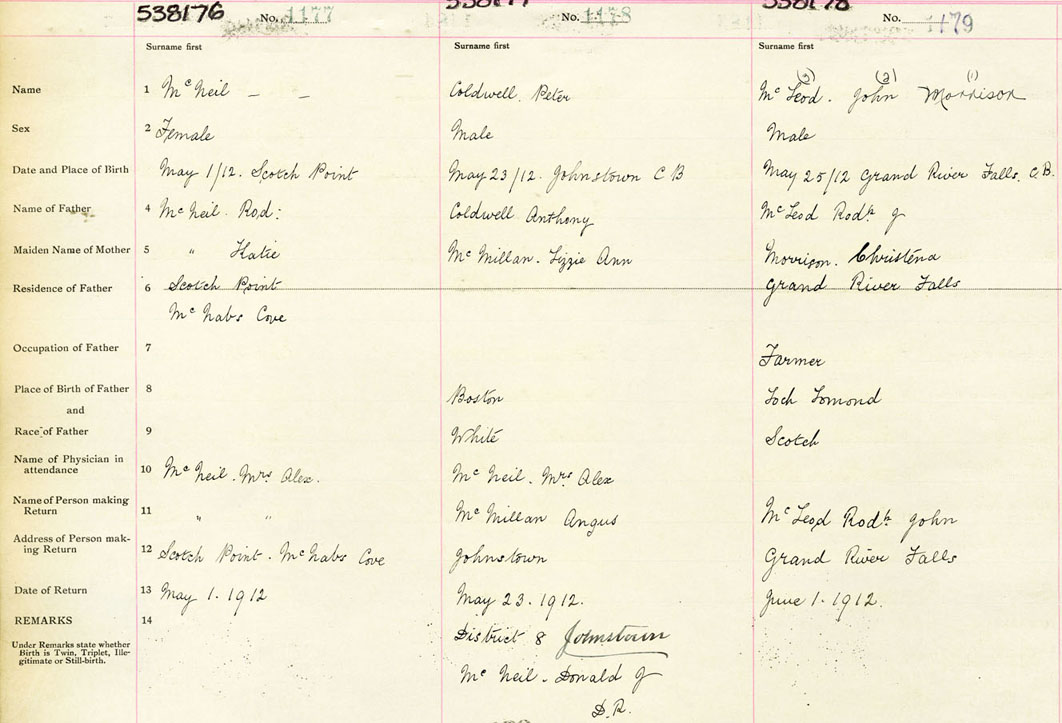 538176 No. 1177 538177 No. 1178 538178 No. 1179
Surname first Surname first Surname first
(3) (2) (1)
Name 1 McNeil – – Coldwell. Peter McLeod. John Morrison
Sex 2 Female Male Male
Date and Place of Birth May 1/12. Scotch Point May 23/12. Johnstown C B May 25/12 Grand River Falls. C.B.
Name of Father 4 McNeil. Rod: Coldwell Anthony McLeod Rodk J
Maiden Name of Mother 5 " Katie McMillan. Lizzie Ann Morrison. Christena
Residence of Father 6 Scotch Point Grand River Falls
McNabs Cove
Occupation of Father 7 Farmer
Place of Birth of Father 8 Boston Loch Lomond
and
Race of Father 9 White Scotch
Name of Physician in
attendance 10 McNeil. Mrs Alex. McNeil. Mrs Alex
Name of Person making
Return 11 " " McMillan Angus McLeod Rodk John
Address of Person mak-
ing Return 12 Scotch Point. McNabs Cove Johnstown Grand River Falls
Date of Return 13 May 1. 1912 May 23. 1912. June 1. 1912.
REMARKS 14 District 8 Johnstown
Under Remarks state whether
Birth is Twin, Triplet, Ille-
gitimate or Still-birth.
McNeil. Donald J
D.R.